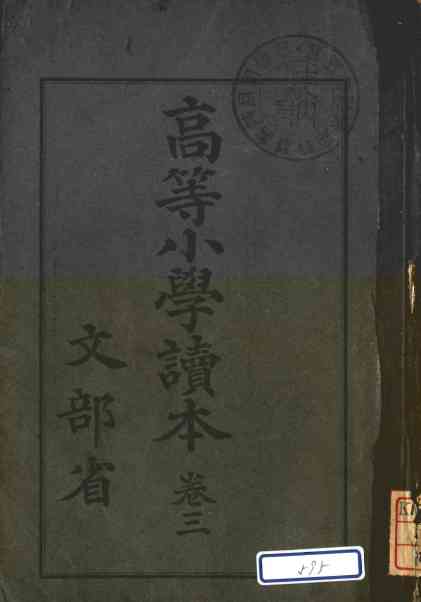 高等小學讀本 卷三
文部省
595